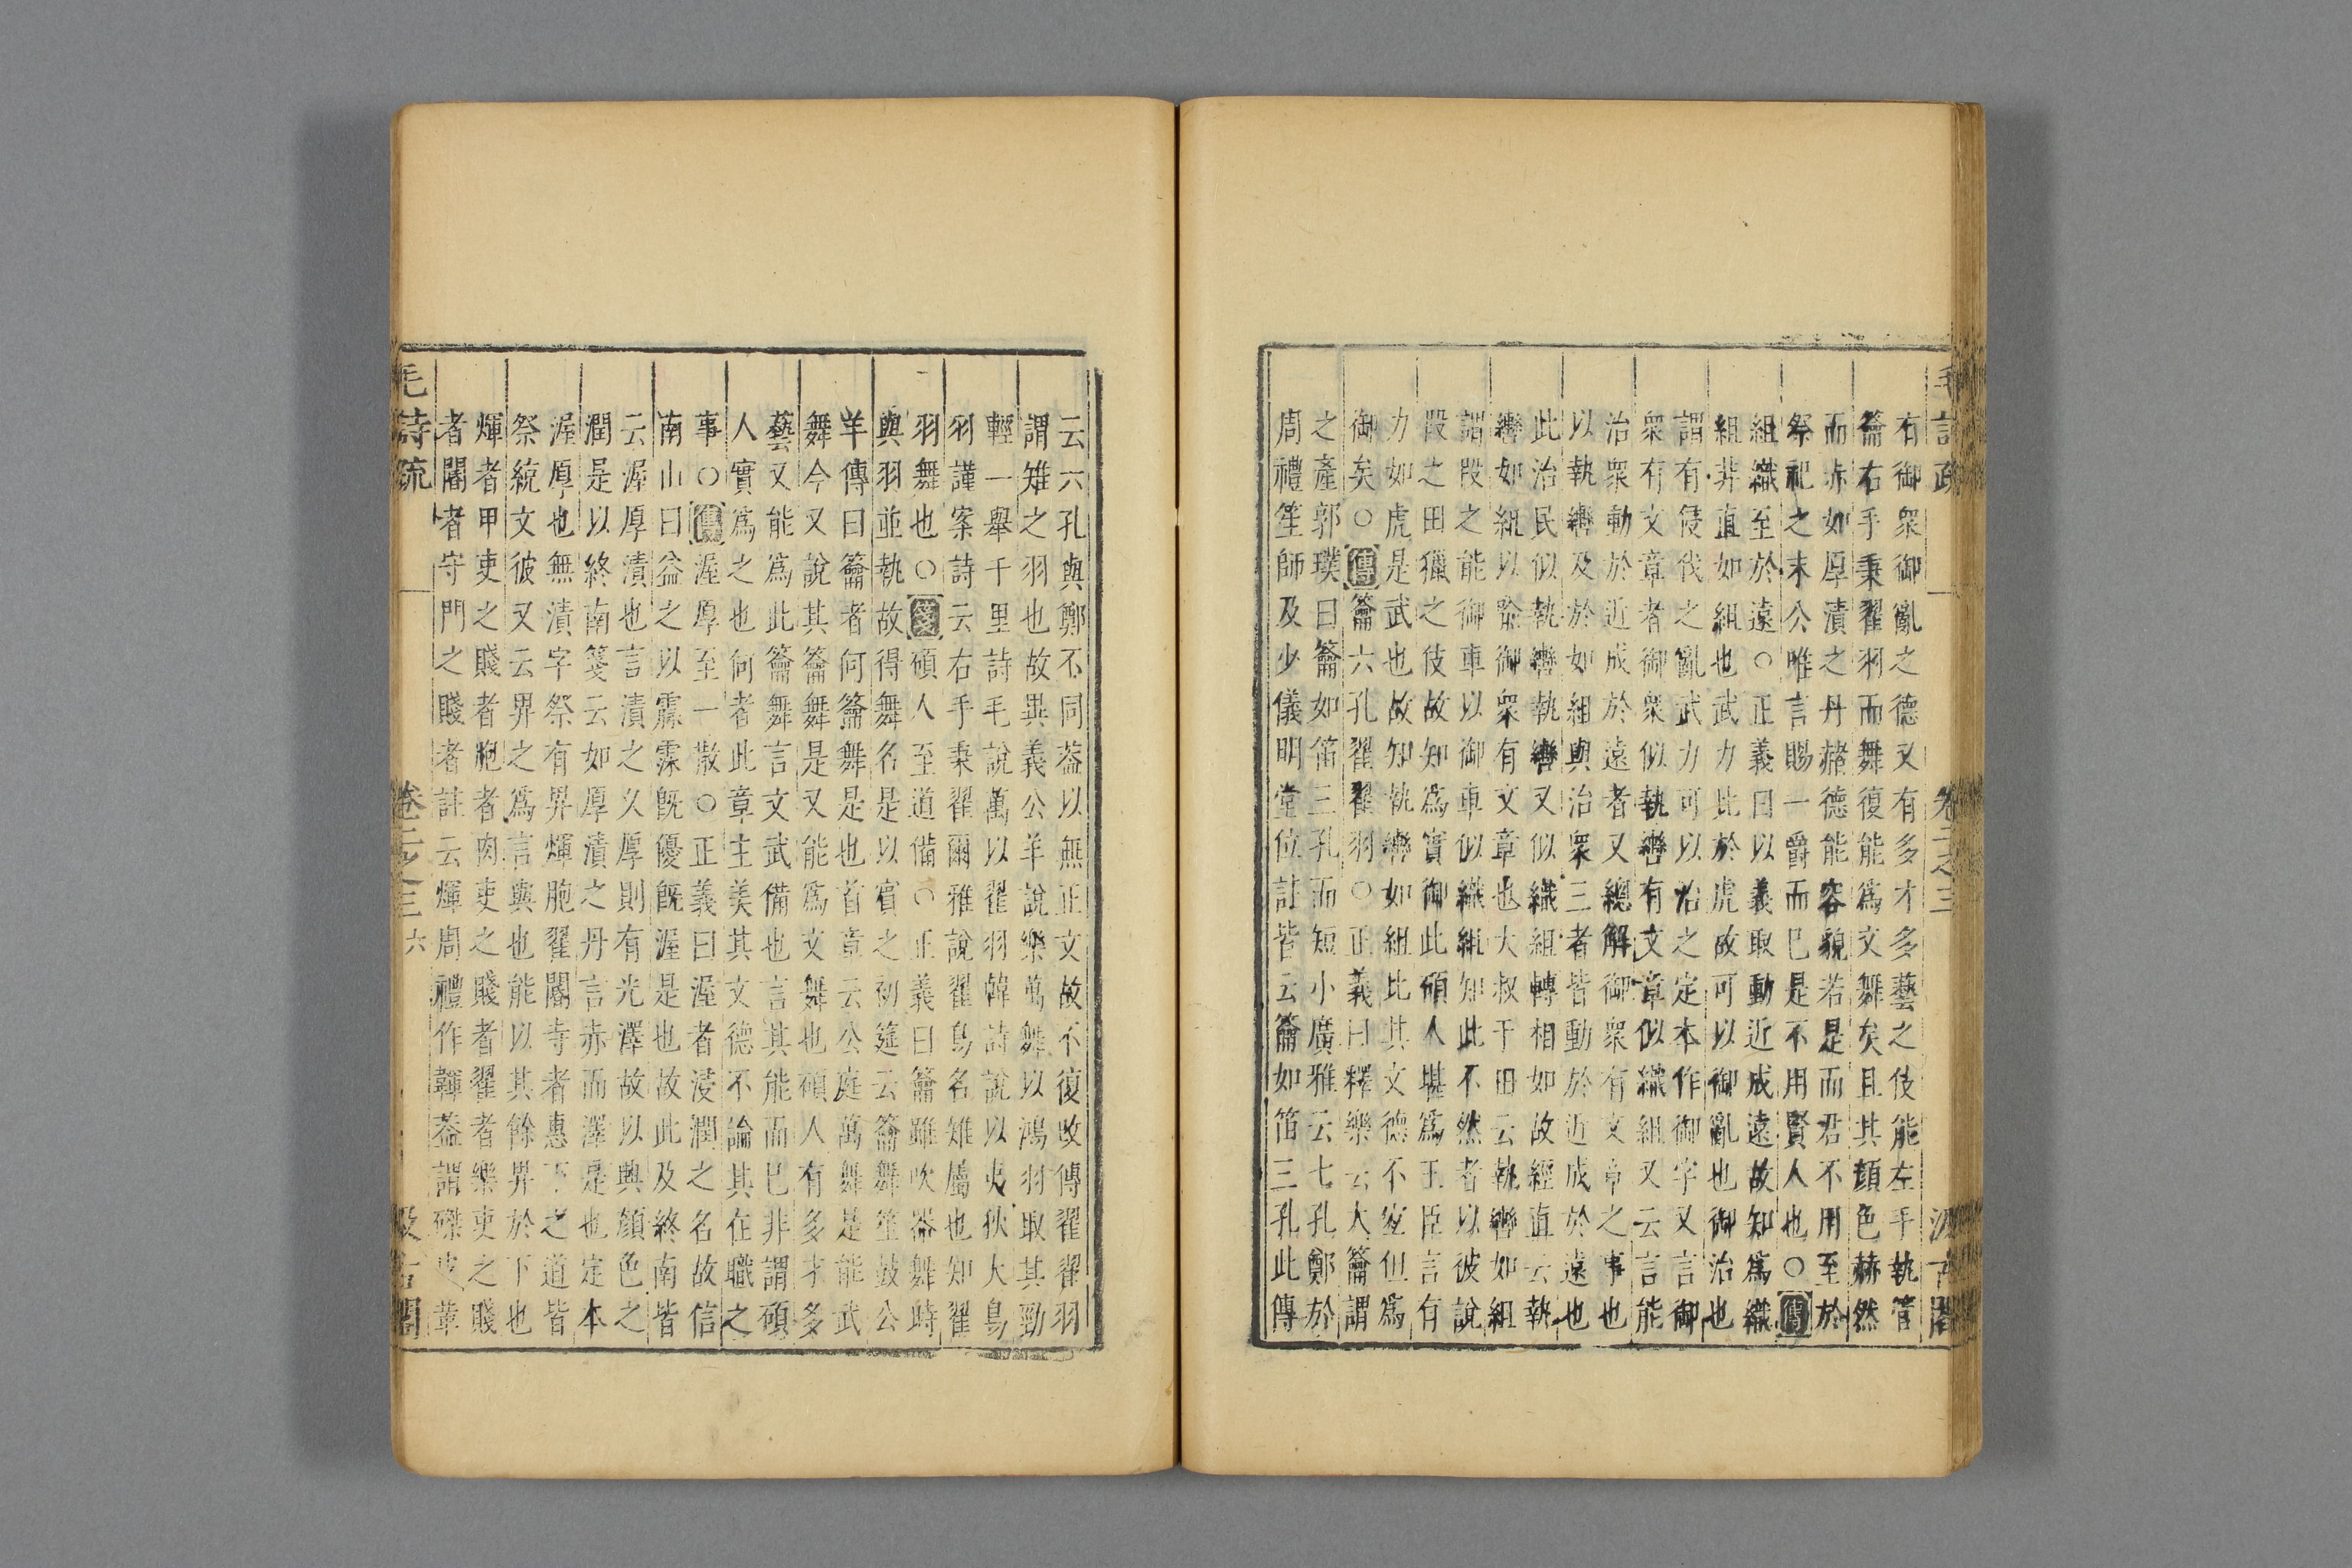 有御衆御亂之德又有多才多藝之伎能左手執管
籥右手秉翟羽而舞復能爲文舞矣且其顔色赫然
而赤如厚漬之丹赭德能容貌若是而君不用至於
祭祀之末公唯言賜一爵而已是不用賢人也○傳
組織至於遠○正義曰以義取動近成遠故知爲織
組非直如組也武力比於虎故可以御亂也御治也
謂有侵伐之亂武力可以治之定本作御字又言御
衆有文章者御衆似執轡有文章似織組又云言能
治衆動於近成於遠者又總解御衆有文章之事也
以執轡及於如組與治衆三者皆動於近成於遠也
此治民似執轡執轡又似織組轉相如故經直云執
轡如組以喻御衆有文章也大叔于田云執轡如組
謂段之能御車以御車似織組知此不然者以彼說
段之田獵之伎故知爲實御此碩人堪爲王臣言有
力如虎是武也故知執轡如組比其文德不宜但爲
御矣○傳籥六孔翟翟羽○正義曰釋樂云大籥謂
之產郭璞曰籥如笛三孔而短小廣雅云七孔鄭於
周禮笙師及少儀明堂位註皆云籥如笛三孔此傳
云六孔與鄭不同葢以無正文故不復改傳翟翟羽
謂雉之羽也故異義公羊說樂萬舞以鴻羽取其勁
輕一舉千里詩毛說萬以翟羽韓詩說以夷狄大鳥
羽謹案詩云右手秉翟爾雅說翟鳥名雉屬也知翟
羽舞也○箋碩人至道備○正義曰籥雖吹器舞時
與羽並執故得舞名是以賓之初筵云籥舞笙鼓公
羊傳曰籥者何籥舞是也首章云公庭萬舞是能武
舞今又說其籥舞是又能爲文舞也碩人有多才多
藝又能爲此籥舞言文武備也言其能而已非謂碩
人實爲之也何者此章主美其文德不論其在職之
事○傳渥厚至一散○正義曰渥者浸潤之名故信
南山曰益之以霡霂旣優旣渥是也故此及終南皆
云渥厚漬也言漬之久厚則有光澤故以興顔色之
潤是以終南箋云如厚漬之丹言赤而澤是也定本
渥厚也無漬字祭有畀煇胞翟閽寺者惠下之道皆
祭統文彼又云畀之爲言與也能以其餘畀於下也
煇者甲吏之賤者胞者肉吏之賤者翟者樂吏之賤
者閽者守門之賤者註云煇周禮作韗葢謂磔皮革
毛詩疏 卷二之三 六 汲古閣